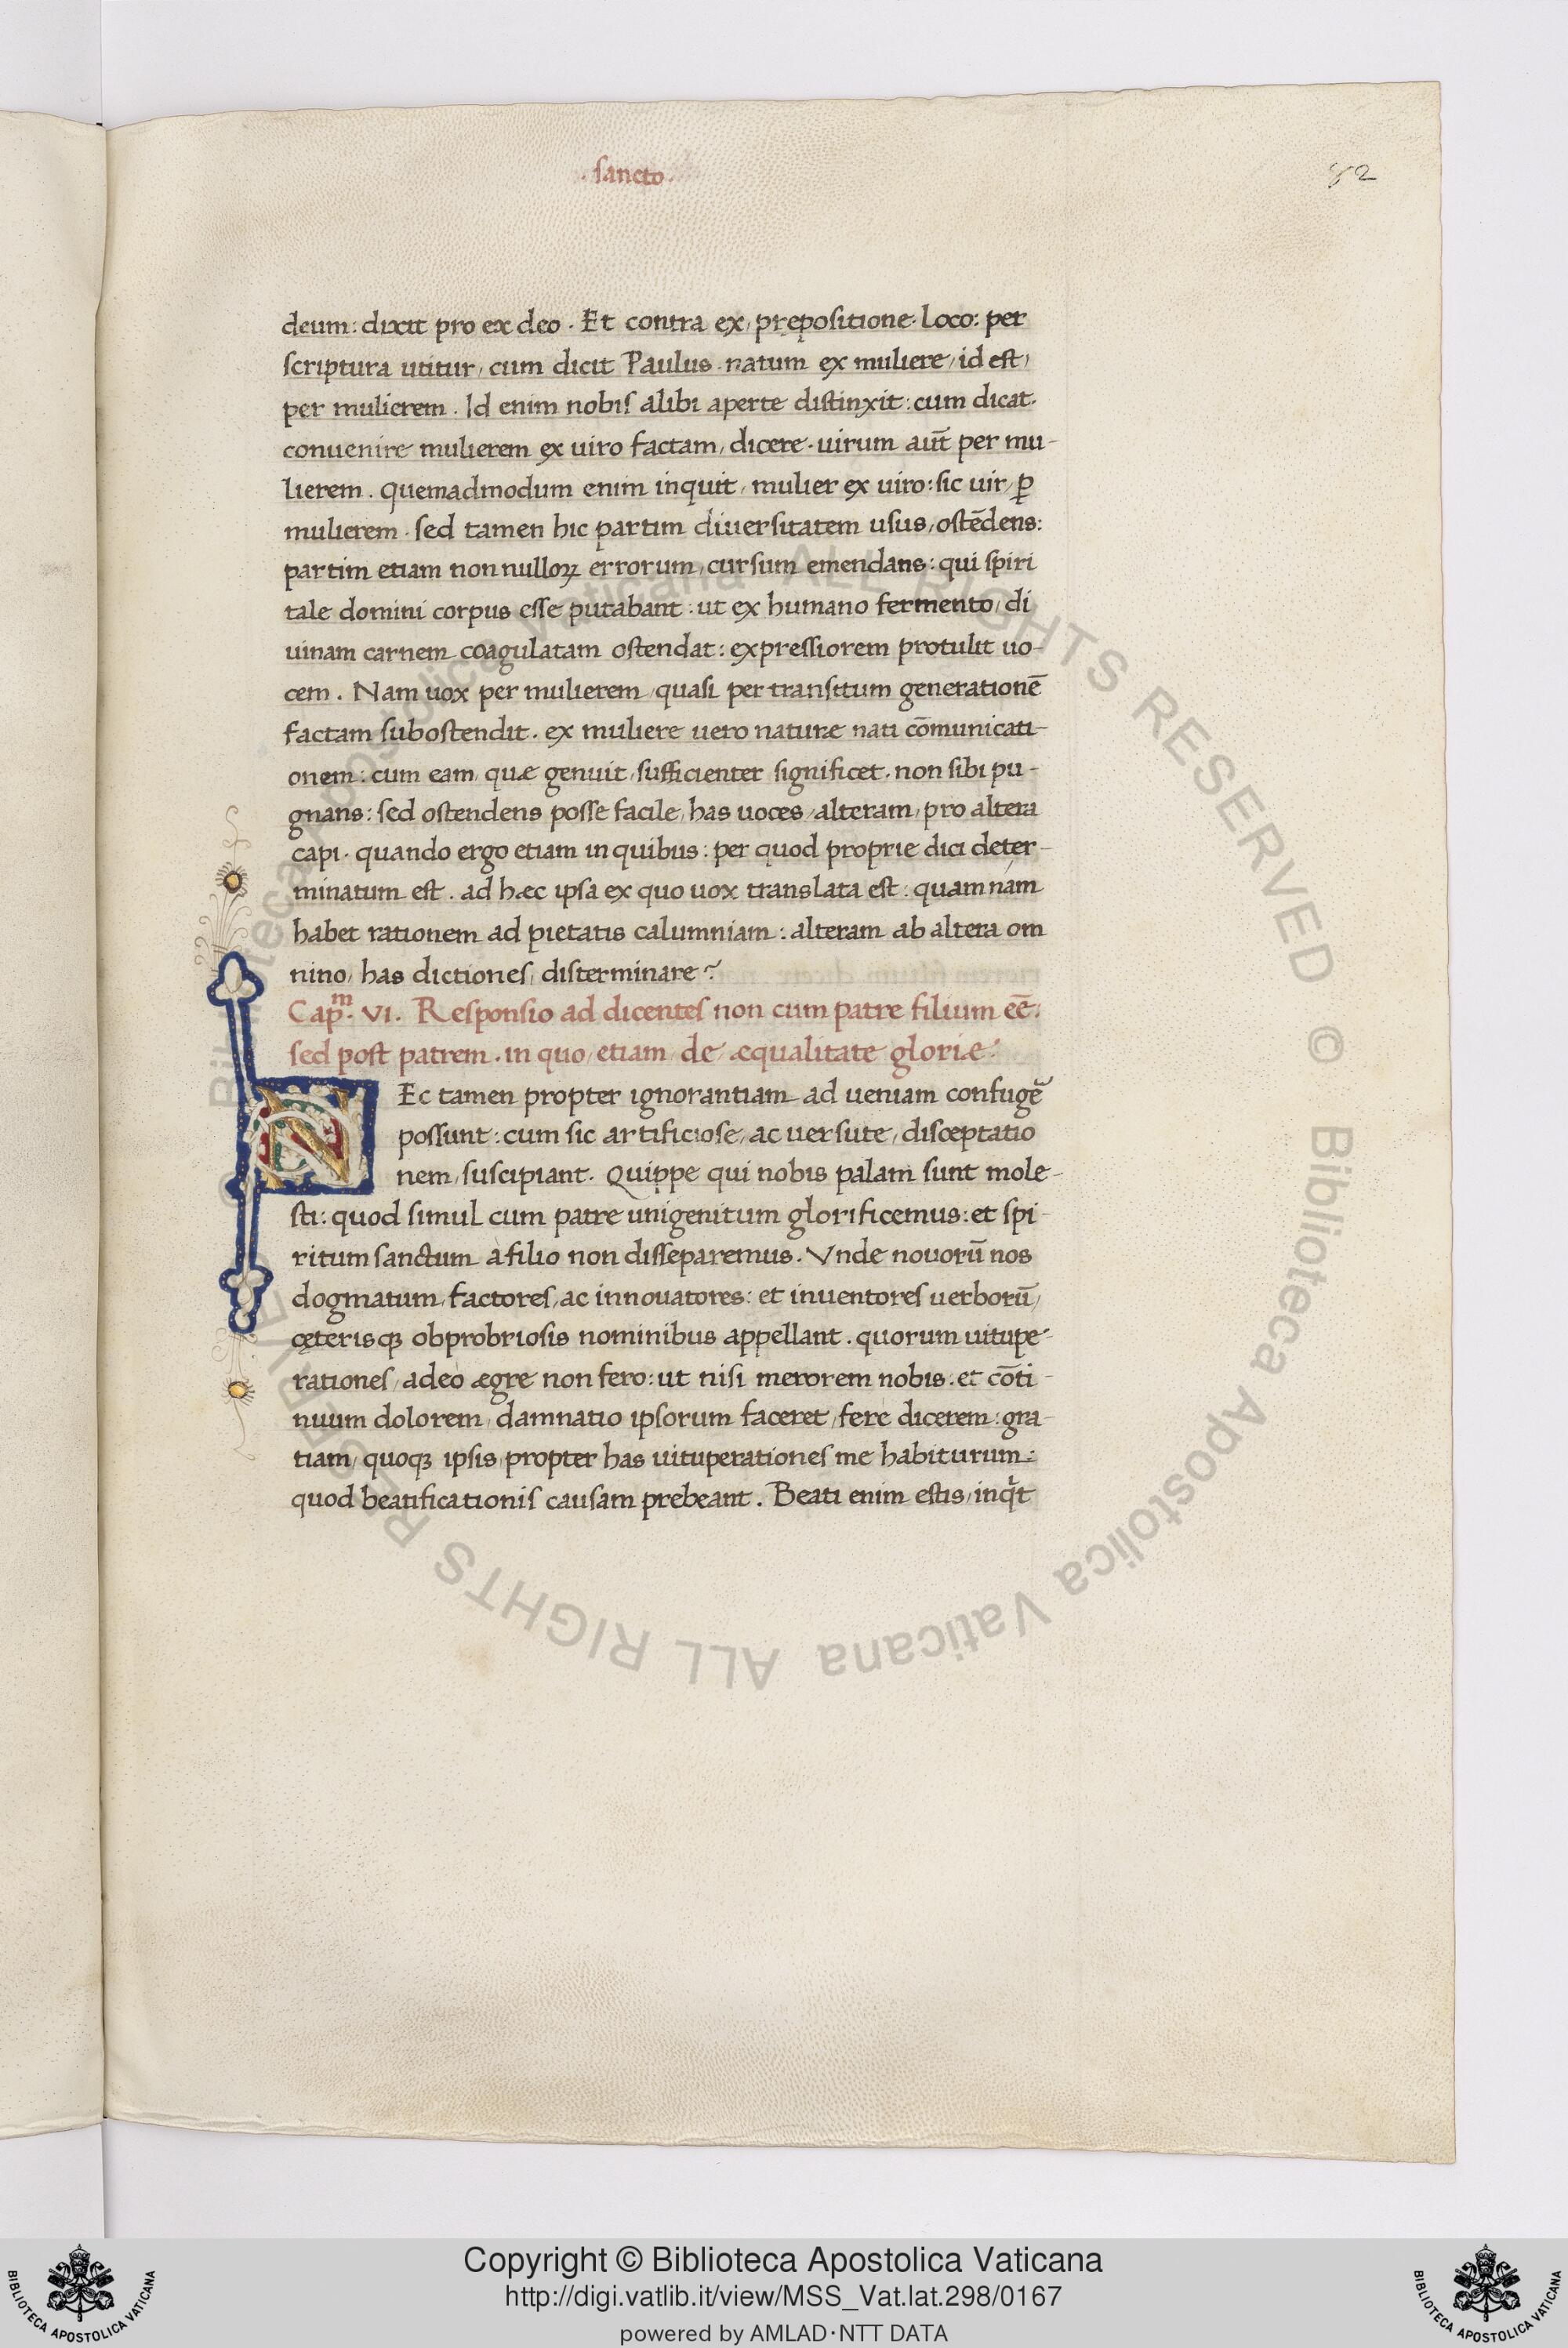 · sancto ·
82
deum: dixit pro ex deo · Et contra ex, prępositione· loco: per
scriptura utitur, cum dicit Paulus· natum ex muliere, id est,
per mulierem . Id enim nobis alibi aperte distinxit: cum dicat·
conuenire mulierem ex uiro factam, dicere· uirum aut̄ per mu-
lierem . quemadmodum enim inquit, mulier ex uiro: sic uir, ꝑ
mulierem · sed tamen hic partim diuersitatem usus, ostēdens:
partim etiam nonnulloꝝ errorum, cursum emendans: qui spiri
tale domini corpus esse putabant: ut ex humano fermento, di
uinam carnem coagulatam ostendat: expressiorem protulit uo-
cem . Nam uox per mulierem, quasi per transitum generationē
factam subostendit · ex muliere uero naturæ nati cōmunicati-
onem: cum eam, quæ genuit, sufficienter significet · non sibi pu-
gnans: sed ostendens posse facile, has uoces, alteram, pro altera
capi · quando ergo etiam in quibus: per quod proprie dici deter-
minatum est . ad hæc ipsa ex quo uox translata est: quam nam
habet rationem ad pietatis calumniam: alteram ab altera om
nino, has dictiones, disterminare?
Cap.ᵐ VI. Responsio ad dicentes non cum patre filium eē:
sed post patrem · in quo, etiam de æqualitate gloriæ·
NEc tamen propter ignorantiam ad ueniam confugē
possunt: cum sic artificiose, ac uersute, disceptatio
nem, suscipiant · Quippe qui nobis palam sunt mole-
sti: quod simul cum patre unigenitum glorificemus: et spi-
ritum sanctum à filio non disseparemus . Vnde nouorū nos
dogmatum, factores, ac innouatores: et inuentores uerborū,
cęterisqꝫ obprobriosis nominibus appellant . quorum uitupe-
rationes, adeò ægre non fero: ut nisi merorem nobis: et cōti-
nuum dolorem, damnatio ipsorum faceret, fere dicerem: gra-
tiam, quoqꝫ ipsis, propter has uituperationes me habiturum:
quod beatificationis causam prebeant . Beati enim estis, inqͥt
Biblioteca Apostolica Vaticana ALL RIGHTS RESERVED © Biblioteca Apostolica Vaticana ALL RIGHTS RESERVED ©
Copyright © Biblioteca Apostolica Vaticana
http://digi.vatlib.it/view/MSS_Vat.lat.298/0167
powered by AMLAD·NTT DATA
BIBLIOTECA APOSTOLICA VATICANA
BIBLIOTECA APOSTOLICA VATICANA